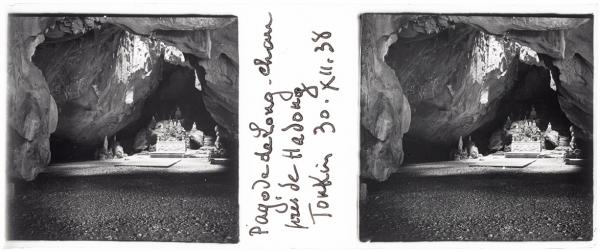 Pagode de Long-Cham
près de Hadong
Tonkin 30.XII.38